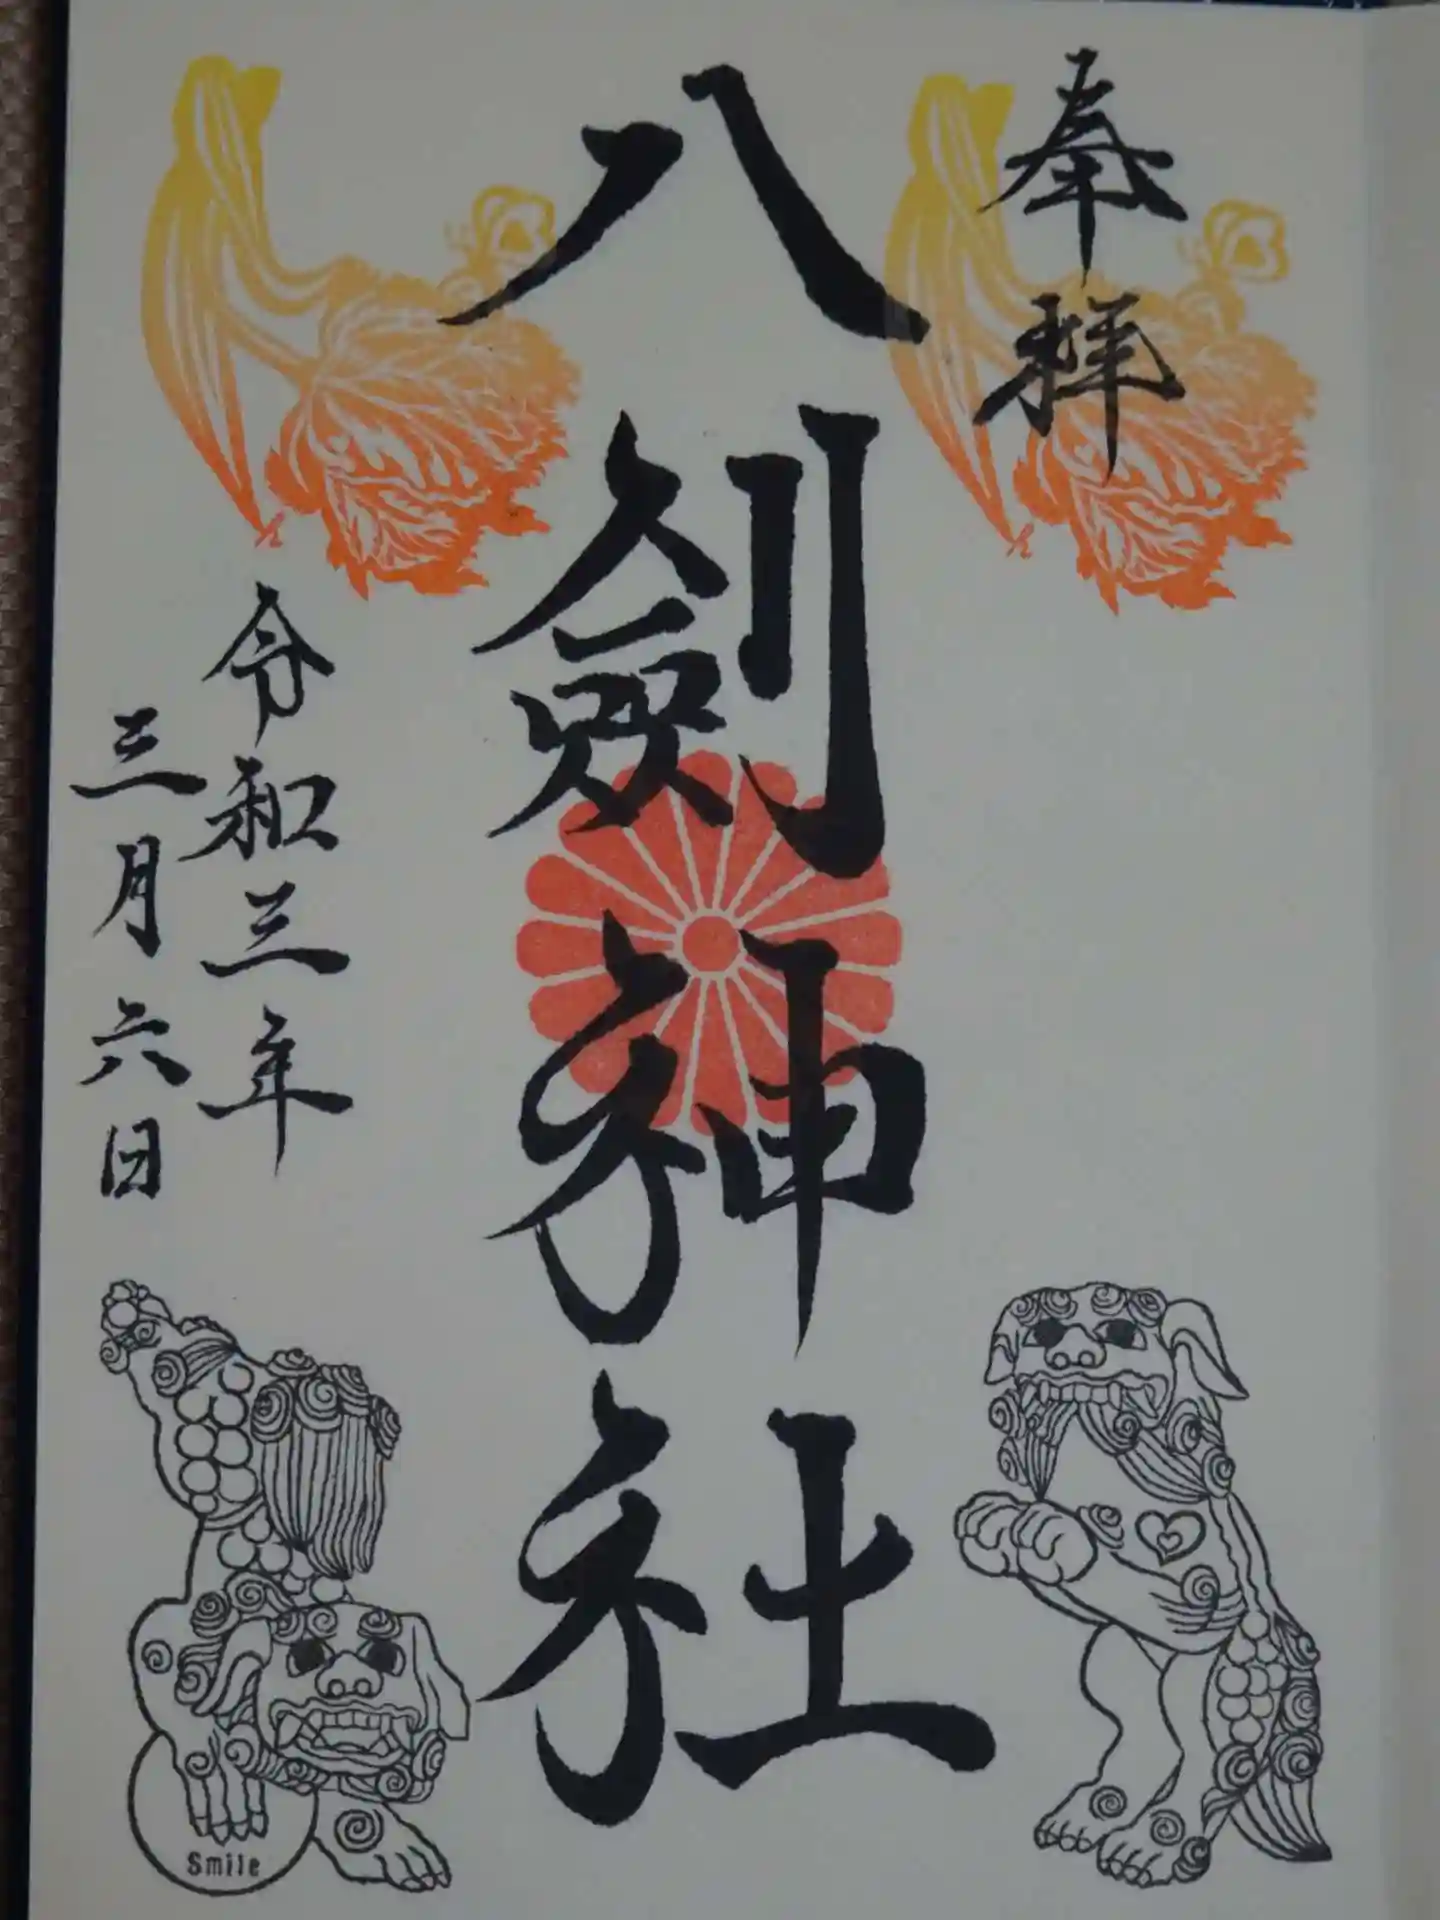 奉拝
八劔神社
令和三年
三月六日
Smile